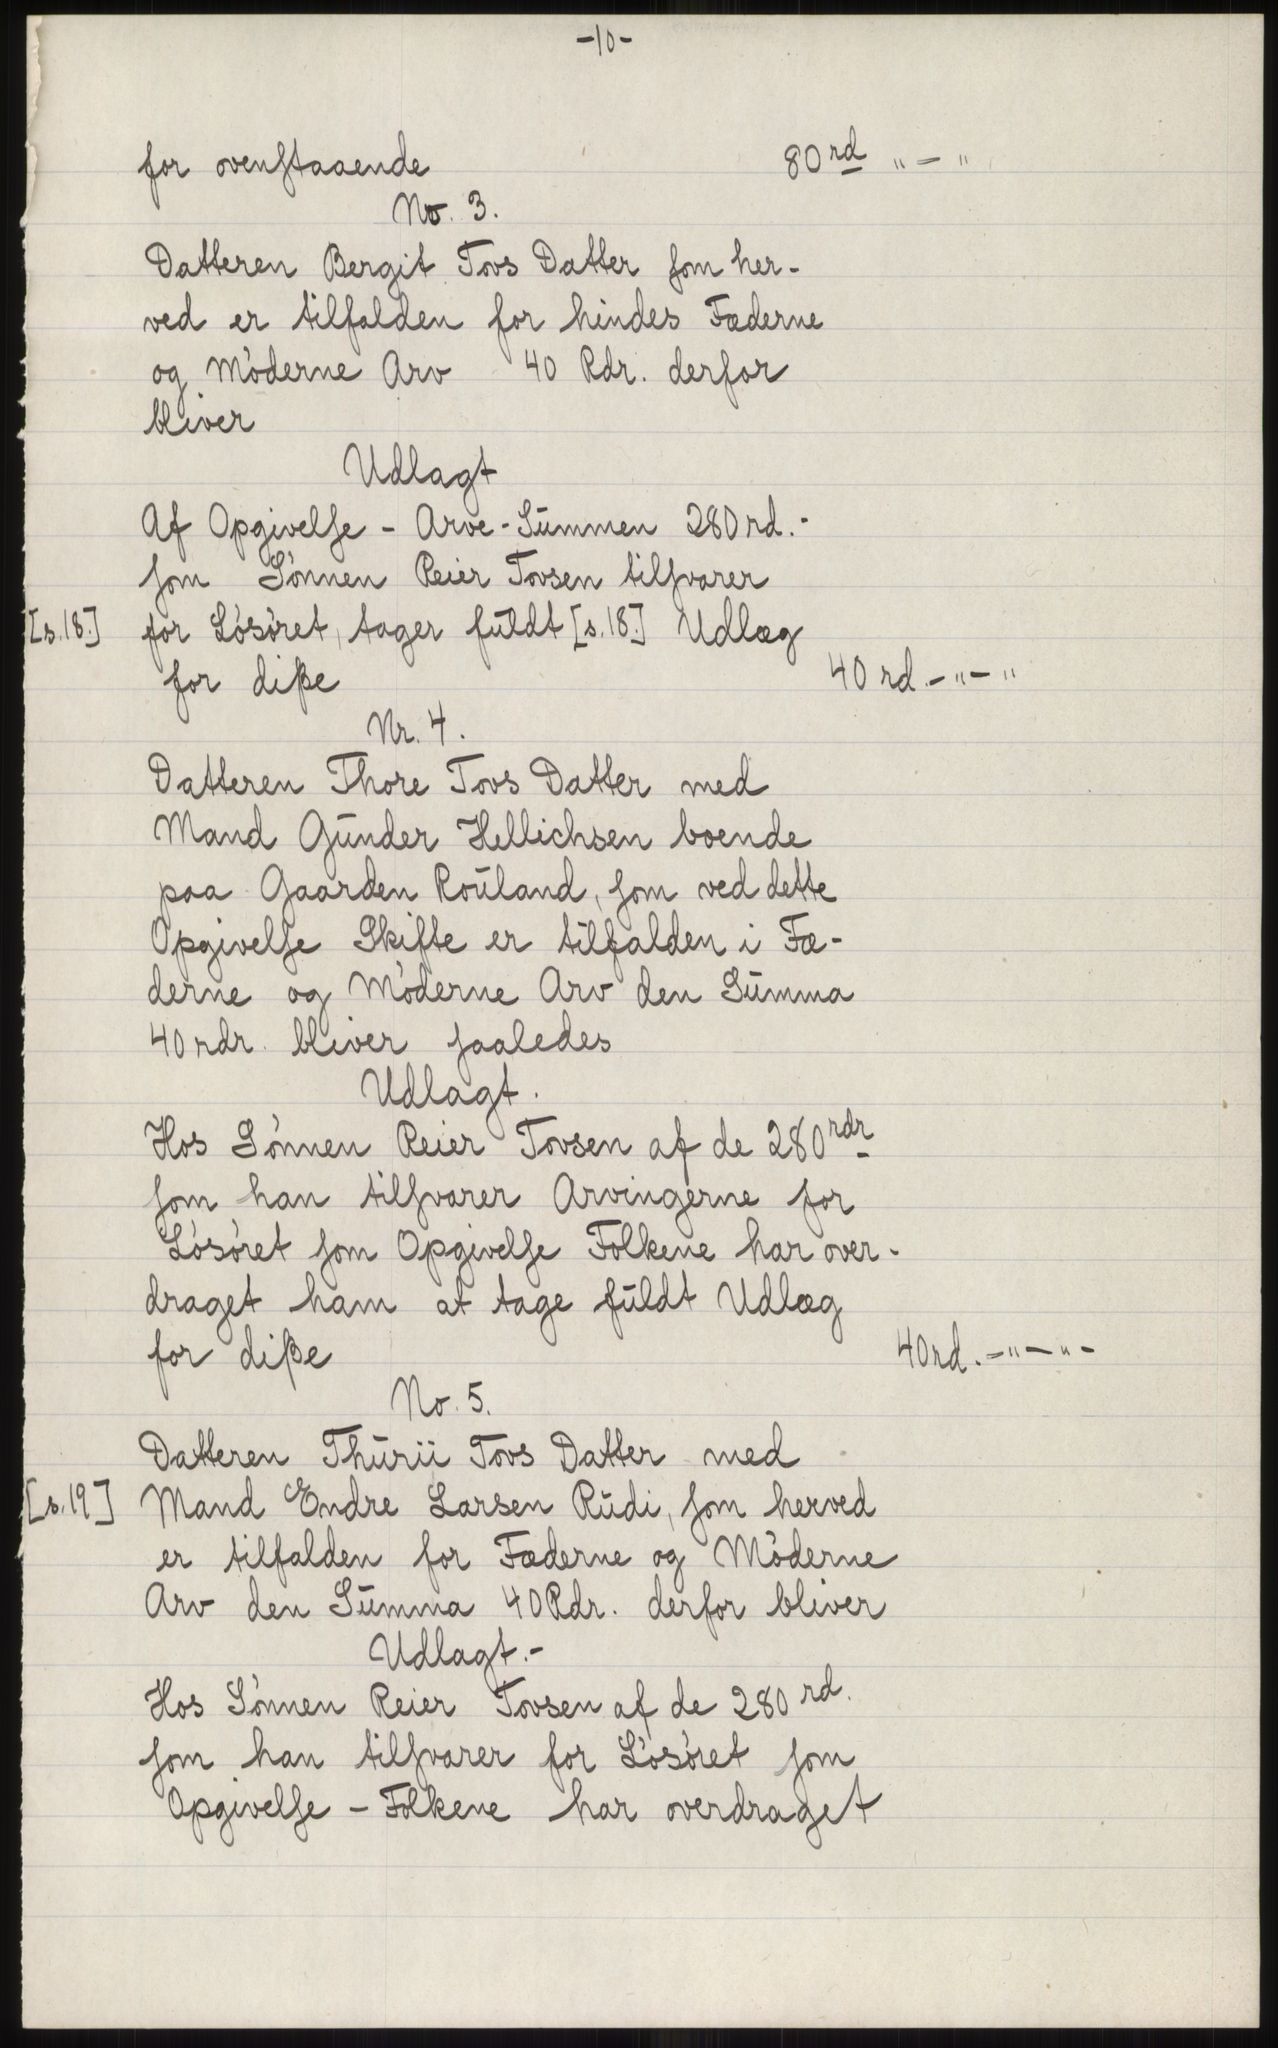 -10-
for ovenstaaende 80 rd " - "
No. 3.
Datteren Bergit Tovs Datter som her-
ved er tilfalden for hindes Fæderne
og Möderne Arv 40 Rdr. derfor
bliver
Udlagt
Af Opgivelse - Arve-Summen 280 rd.-
som Sönnen Reier Tovsen tilsvarer
[s.18.] for Lösöret, tager fuldt [s.18.] Udlæg
for diße 40 rd.-"-"
Nr. 4.
Datteren Thore Tovs Datter med
Mand Gunder Hellichsen boende
paa Gaarden Rouland, som ved dette
Opgivelse Skifte er tilfalden i Fæ-
derne og Möderne Arv den Summa
40 rdr. bliver saaledes
Udlagt.
Hos Sönnen Reier Tovsen af de 280 rdr
som han tilsvarer Arvingerne for
Lösöret som Opgivelse Folkene har over-
draget ham at tage fuldt Udlæg
for diße 40 rd.-"-"-
No. 5.
Datteren Thurii Tovs Datter med
[s.19] Mand Endre Larsen Rudi, som herved
er tilfalden for Fæderne og Möderne
Arv den Summa 40 Rdr. derfor bliver
Udlagt.-
Hos Sönnen Reier Tovsen af de 280 rd.
som han tilsvarer for Lösöret som
Opgivelse - Folkene har overdraget